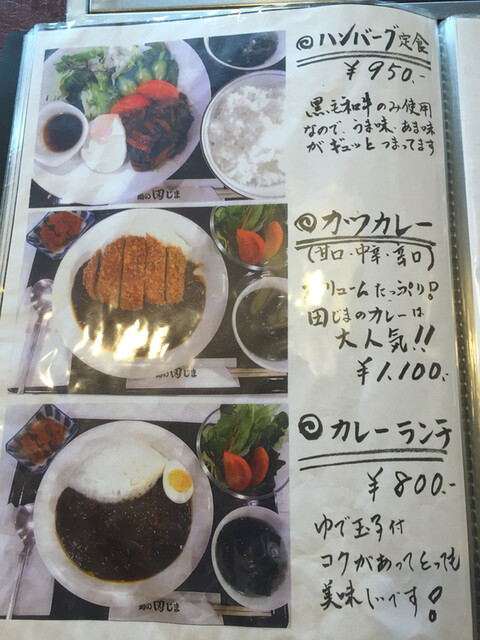 ハンバーグ定食
¥950.-
黒毛和牛のみ使用
なので、うま味、あま味
がギュッとつまってます
肉の田じま
カツカレー
(甘口・中辛・辛口)
ボリュームたっぷり!
田じまのカレーは
大人気!!
¥1,100.-
肉の田じま
カレーランチ
¥800.-
ゆで玉子付
コクがあってとっても
美味しいです!
肉の田じま